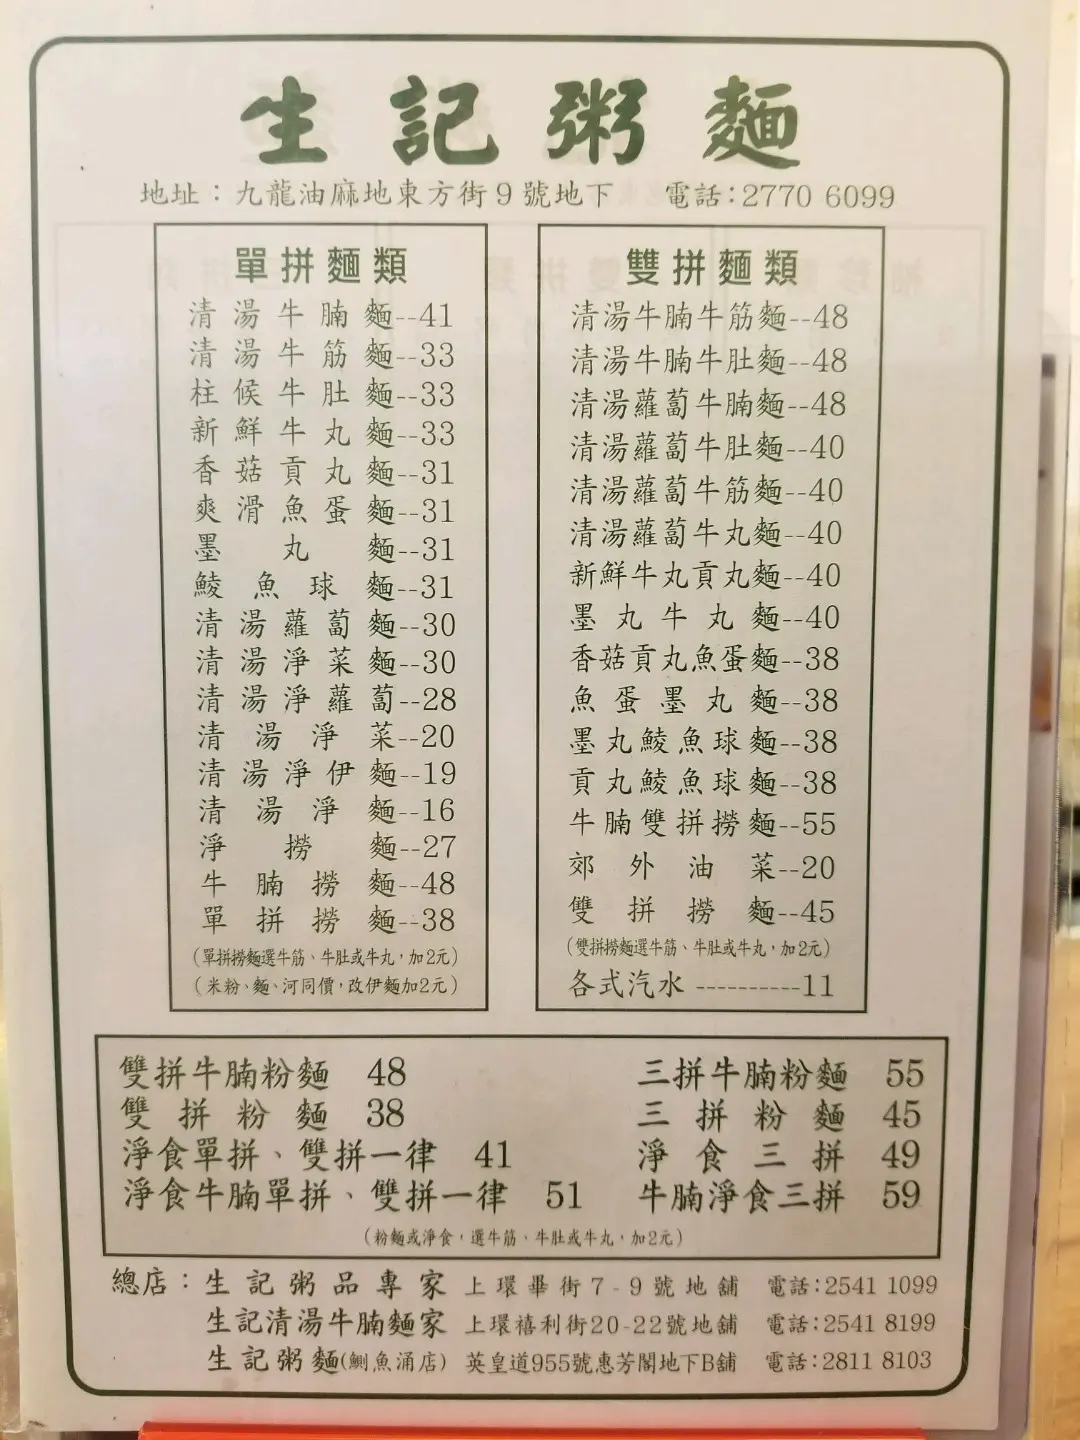 生記粥麵
地址：九龍油麻地東方街9號地下 電話:2770 6099
單拼麵類
清湯牛腩麵--41
清湯牛筋麵--33
柱候牛肚麵--33
新鮮牛丸麵--33
香菇貢丸麵--31
爽滑魚蛋麵--31
墨丸麵--31
鯪魚球麵--31
清湯蘿蔔麵--30
清湯淨菜麵--30
清湯淨蘿蔔--28
清湯淨菜--20
清湯淨伊麵--19
清湯淨麵--16
淨撈麵--27
牛腩撈麵--48
單拼撈麵--38
(單拼撈麵選牛筋、牛肚或牛丸，加2元)
(米粉、麵、河同價，改伊麵加2元)
雙拼麵類
清湯牛腩牛筋麵--48
清湯牛腩牛肚麵--48
清湯蘿蔔牛腩麵--48
清湯蘿蔔牛肚麵--40
清湯蘿蔔牛筋麵--40
清湯蘿蔔牛丸麵--40
新鮮牛丸貢丸麵--40
墨丸牛丸麵--40
香菇貢丸魚蛋麵--38
魚蛋墨丸麵--38
墨丸鯪魚球麵--38
貢丸鯪魚球麵--38
牛腩雙拼撈麵--55
郊外油菜--20
雙拼撈麵--45
(雙拼撈麵選牛筋、牛肚或牛丸，加2元)
各式汽水 ----------11
雙拼牛腩粉麵 48
雙拼粉麵 38
淨食單拼、雙拼一律 41
淨食牛腩單拼、雙拼一律 51
三拼牛腩粉麵 55
三拼粉麵 45
淨食三拼 49
牛腩淨食三拼 59
(粉麵或淨食，選牛筋、牛肚或牛丸，加2元)
總店：生記粥品專家 上環畢街7-9號地舖 電話:2541 1099
生記清湯牛腩麵家 上環禧利街20-22號地舖 電話:2541 8199
生記粥麵(鰂魚涌店) 英皇道955號惠芳閣地下B舖 電話:2811 8103